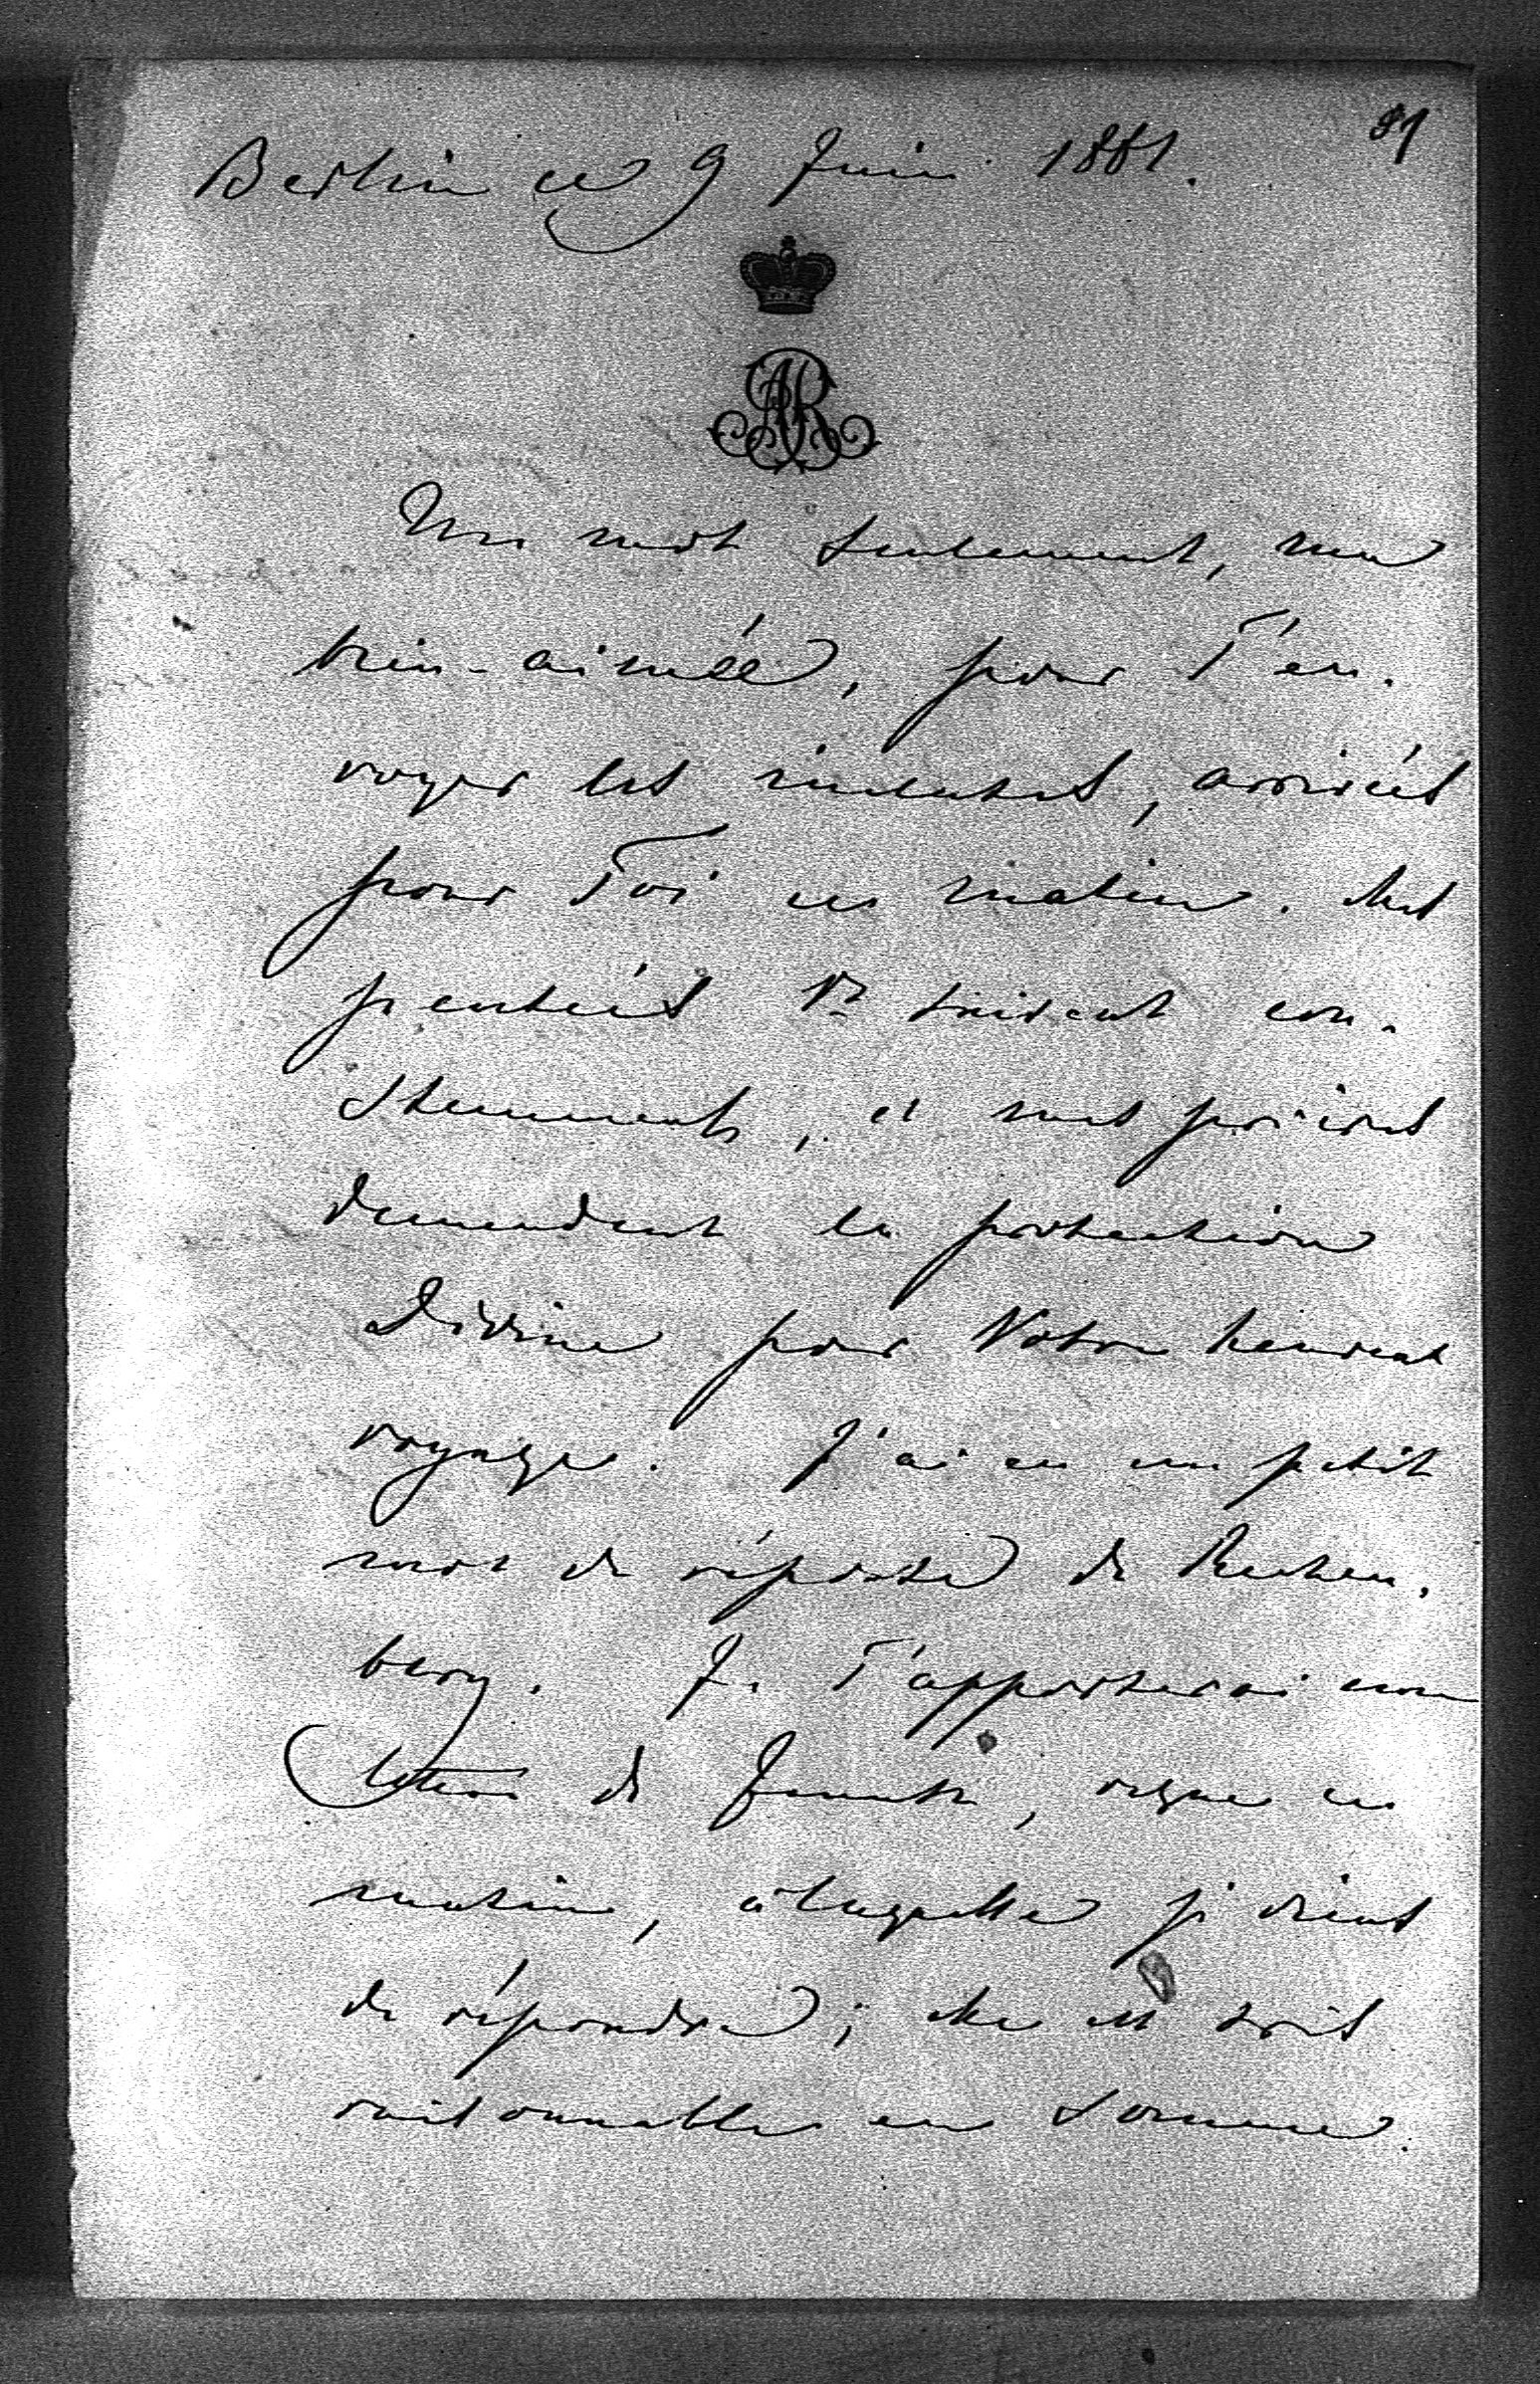 81
Berlin ce 9 Juin 1881.
AR
Un mot seulement, ma
bien-aimée, pour T'en-
voyer les incluses, arrivées
pour Toi ce matin. Mes
pensées Vs suivent con-
stemment, et mes prières
demandent la protection
Divine pour Votre heureux
voyage. J'ai eu un petit
mot de réponse de Rechen-
berg. Je T'apporterai une
lettre de , reçue ce
matin, à laquelle je viens
de répondre; elle est très
raisonnable en somme.